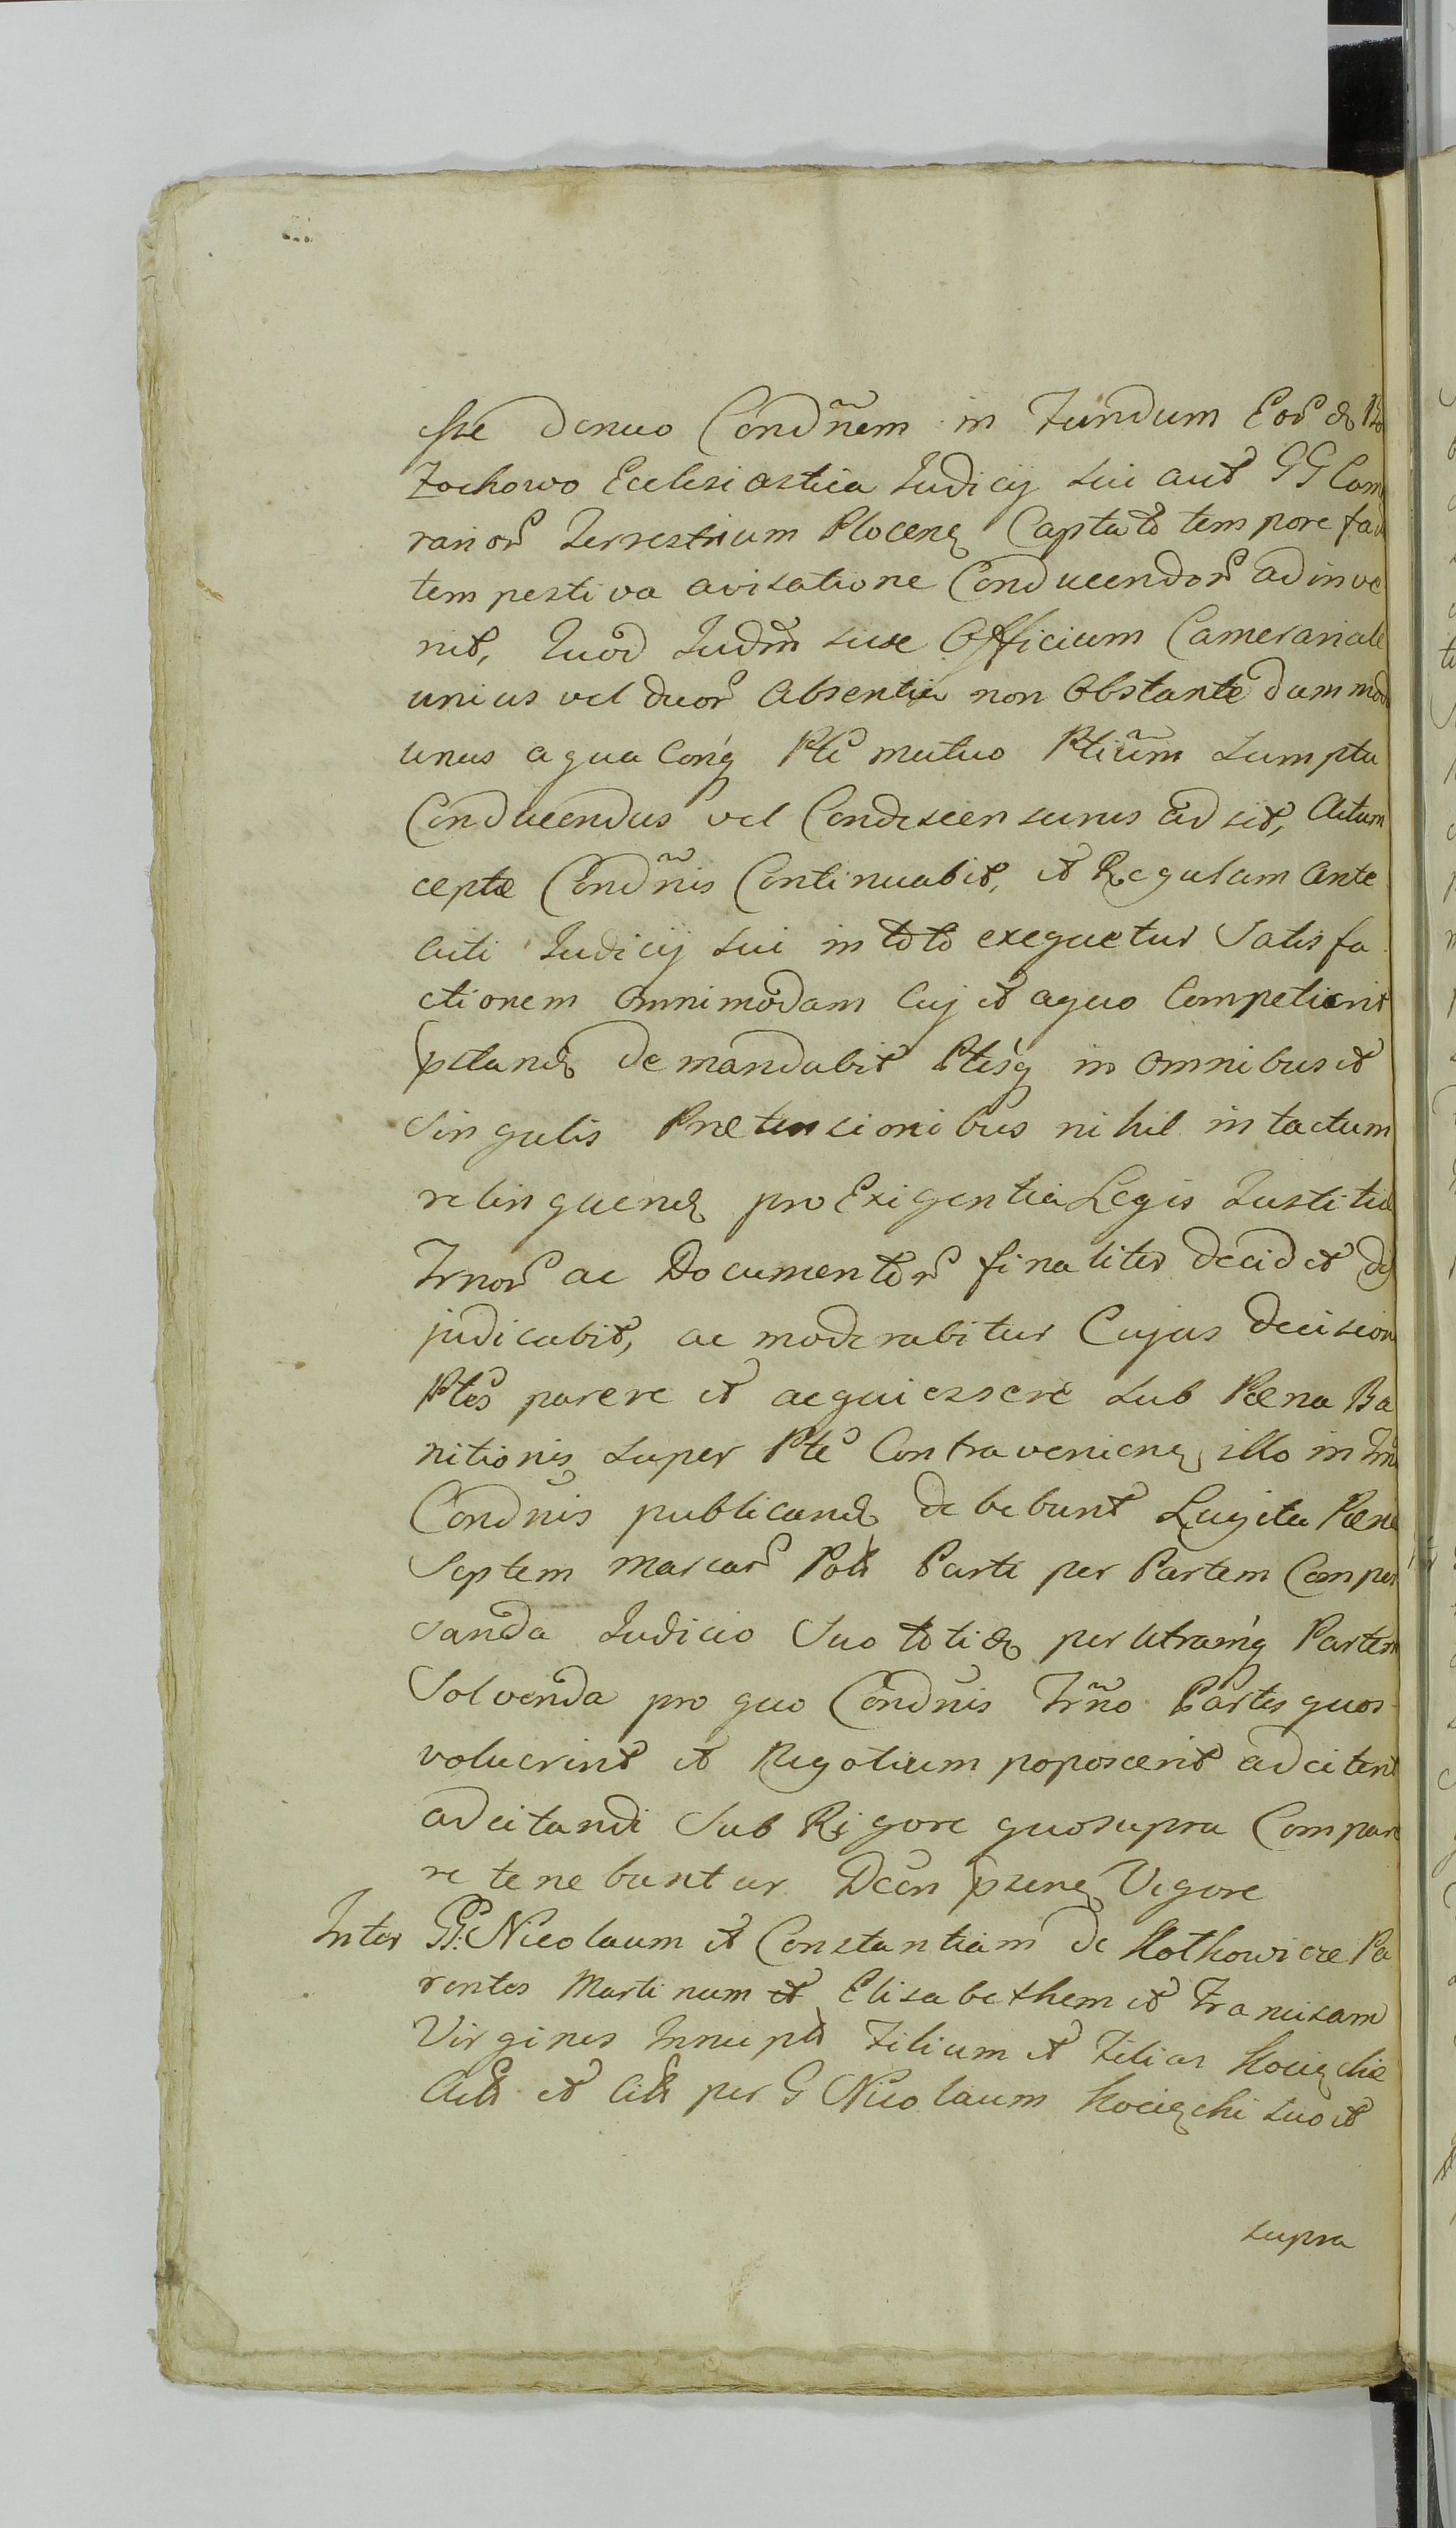 sse denuo Condñem in Fundum Eor̃
Zochowo Ecclesiastica Judicij sui aut GG Cam
ranor̃ Terrestrium Plocen Captato tempore fa
tempestiva avisatione Conducendor̃ adinve
nit, Quod Judm̃ sive Officium Camerariale
unius vel duor̃ absentia non obstante dummodo
unus aqua Conq̃ Pte mutuo Ptiũm sumptu
Conducendus vel Condescensurus adsit, Actum
ceptæ Condñis Continuabit, et Regulam ante
lati Judicij sui in toto exequetur Satisfa
ctionem omnimodam Cuj et aquo Competierit
pstand demandabit Ptisq̃ in omnibus et
Singulis Prætensionibus nihil intactum
relinquen pro Exigentia Legis Justitiæ
Trnor̃ ac Documentor̃ finaliter decidet di
judicabit, ac moderabitur Cujus decision
Ptes parere et acquiessere sub Pæna Ba
nitionis super Pte Contravenien illo in Trno
Condñis publicand debebunt Lugita Pæna
Septem Marcar̃ Pol Parti per Partem Compen
sanda Judicio Suo totid per Utramq̃ Partem
Solvenda pro quo Condñis Trñno Partes quos
voluerint et Negotium poposcerit adcitent
adcitandi Sub Rigore quo supra Compare
re tenebuntur Dcen psen Vigore
Inter GG: Nicolaum et Constantiam de Kotkowicze Pa
rentes Martinum et Elisabethem et Franciscam
Virgines Innupt Filium et Filias Kocięckie
Act et Cit per G Nicolaum Kocięcki suo et
supra